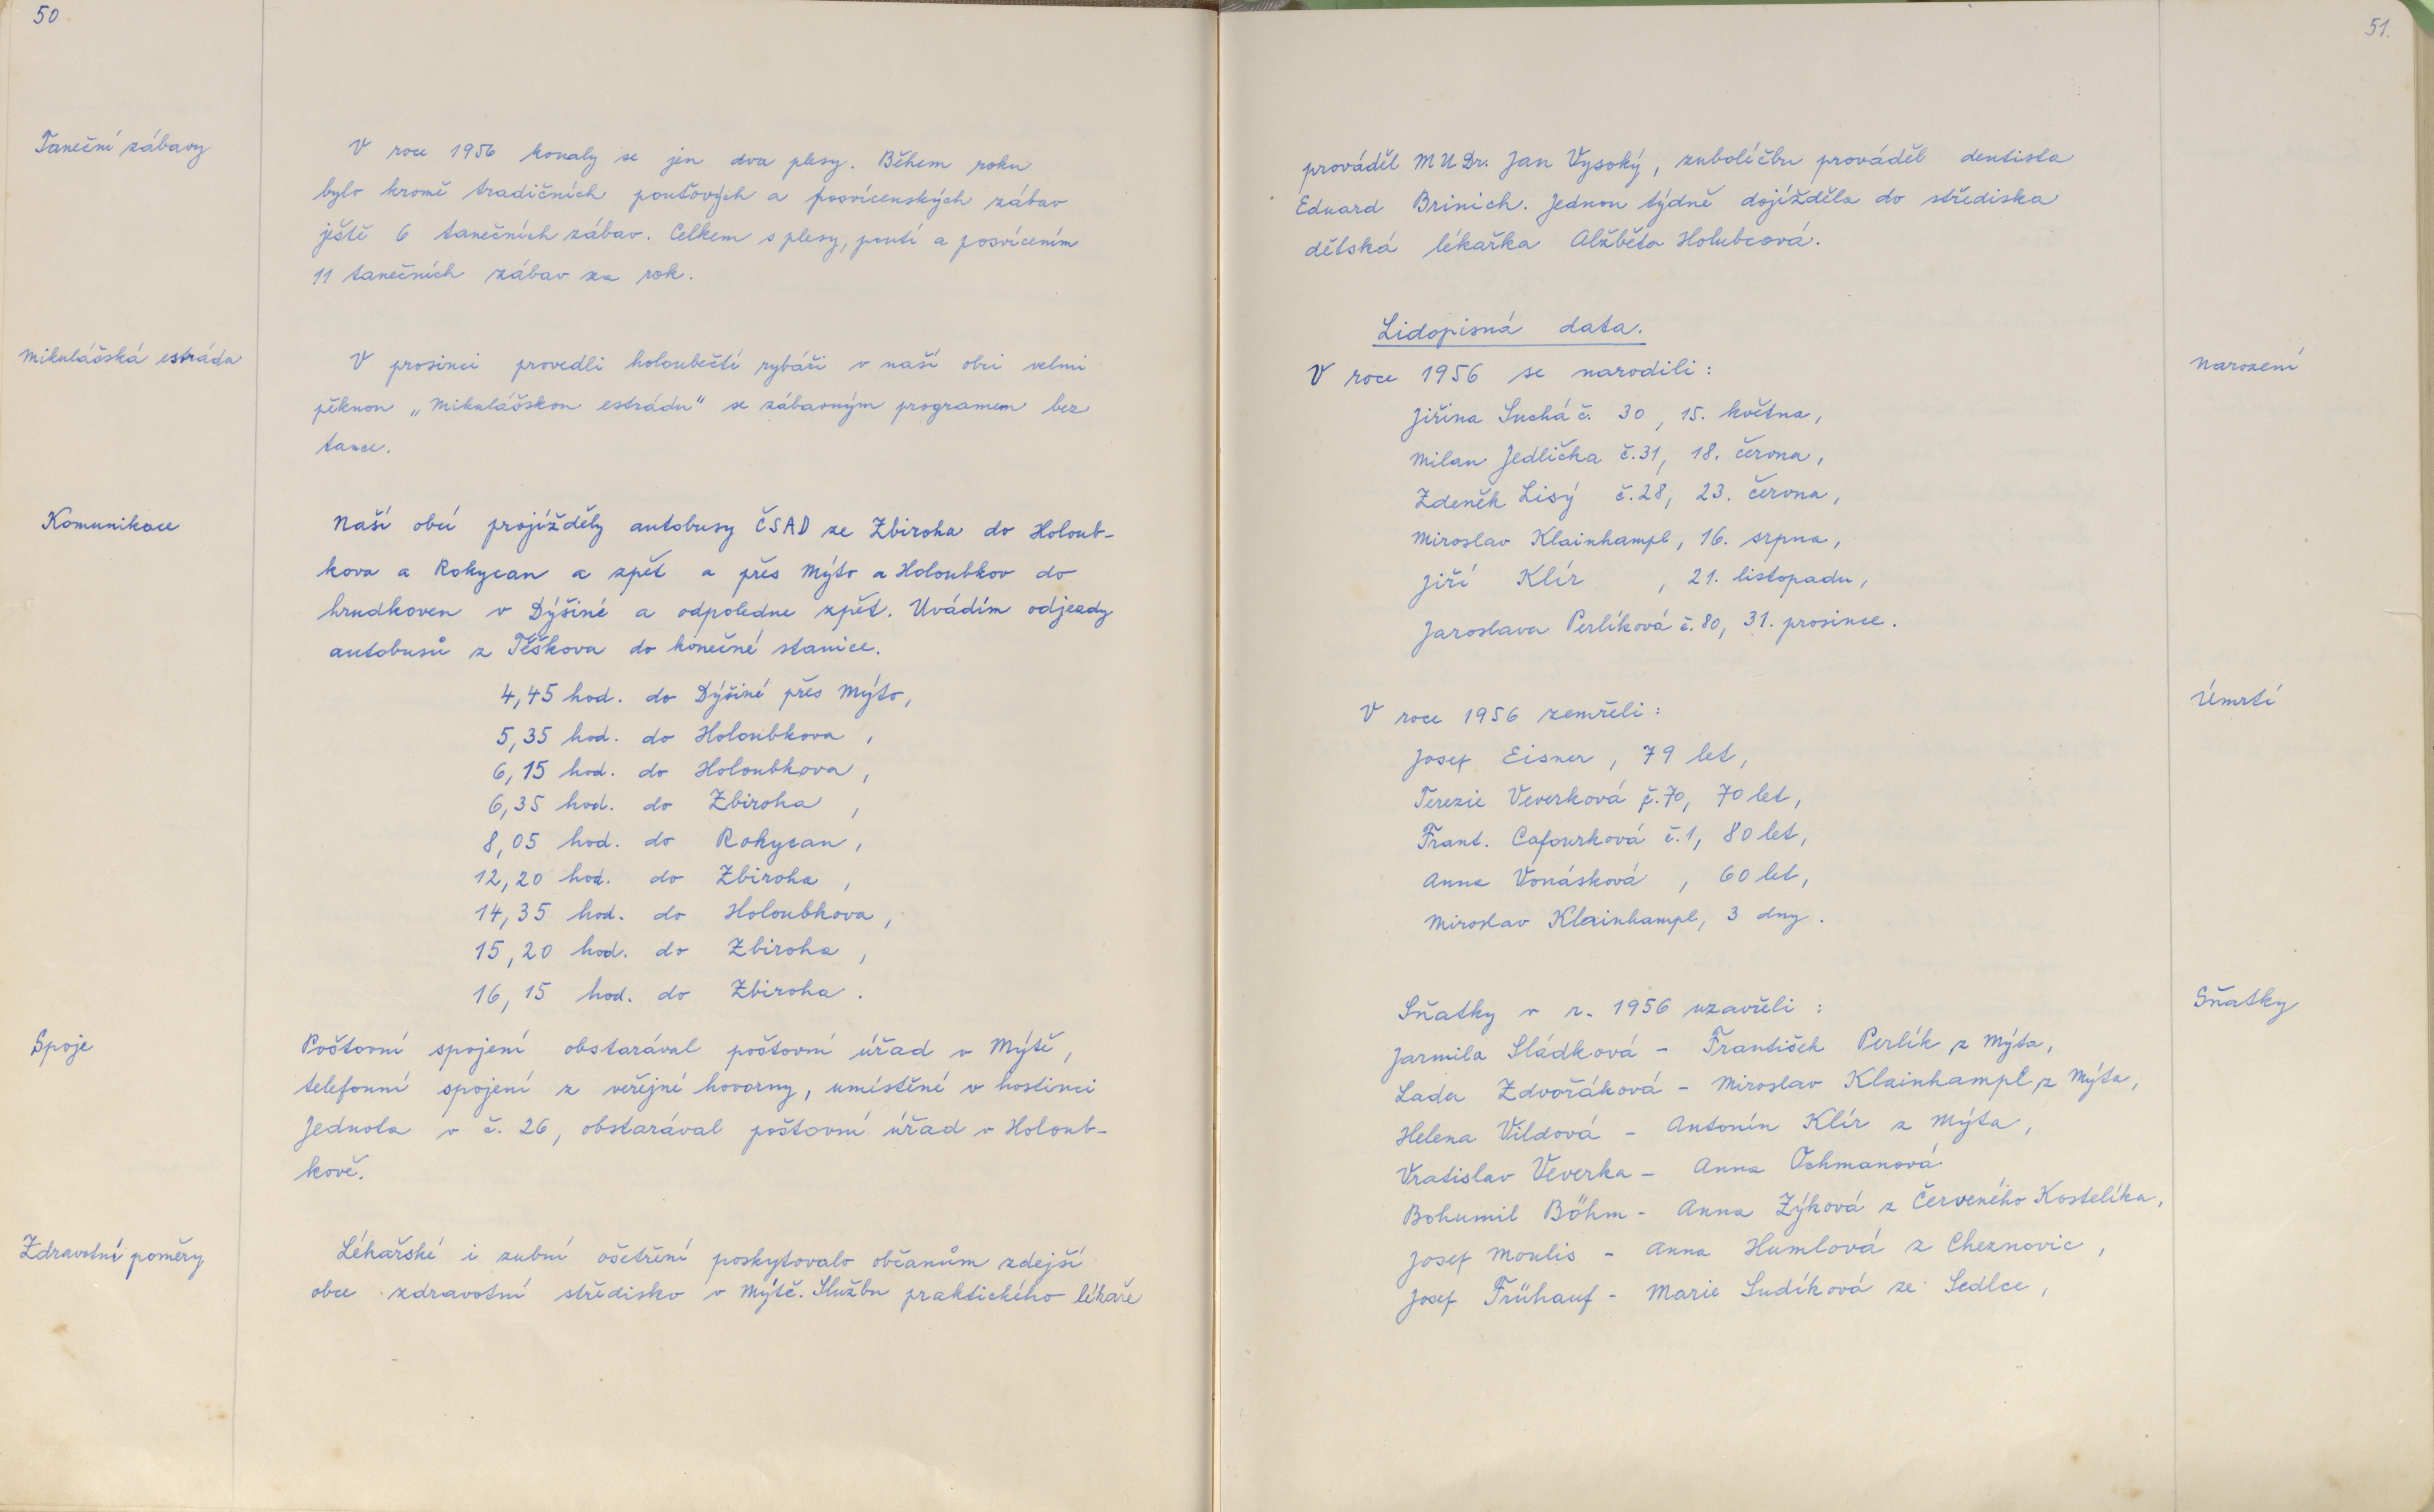 50
Taneční zábavy
V roce 1956 konaly se jen dva plesy. Během roku
bylo kromě tradičních pouťových a posvícenských zábav
ještě 6 tanečních zábav. Celkem s plesy, poutí a posvícením
11 tanečních zábav za rok.
Mikulášská estráda
V prosinci provedli holoubečtí rybáři v naší obci velmi
pěknou „Mikulášskou estrádu" se zábavným programem bez
tance.
Komunikace
Naší obcí projížděly autobusy ČSAD ze Zbiroha do Holoub-
kova a Rokycan a zpět a přes Mýto a Holoubkov do
hrudkoven v Dýšiné a odpoledne zpět. Uvádím odjezdy
autobusů z Těškova do konečné stanice.
4,45 hod. do Dýšiné přes Mýto,
5,35 hod. do Holoubkova,
6,15 hod. do Holoubkova,
6,35 hod. do Zbiroha,
8,05 hod. do Rokycan,
12,20 hod. do Zbiroha,
14,35 hod. do Holoubkova,
15,20 hod. do Zbiroha,
16,15 hod. do Zbiroha.
Spoje
Poštovní spojení obstarával poštovní úřad v Mýtě,
telefonní spojení z veřejné hovorny, umístěné v hostinci
Jednota v č. 26, obstarával poštovní úřad v Holoub-
kově.
Zdravotní poměry
Lékařské i zubní ošetření poskytovalo občanům zdejší
obce zdravotní středisko v Mýtě. Službu praktického lékaře
51.
prováděl MUDr. Jan Vysoký, zuboléčbu prováděl dentista
Eduard Brinich. Jednou týdně dojížděla do střediska
dětská lékařka Alžběta Holubcová.
Lidopisná data.
Narození
V roce 1956 se narodili:
Jiřina Suchá č. 30, 15. května,
Milan Jedlička č. 31, 18. června,
Zdeněk Lisý č. 28, 23. června,
Miroslav Klainhampl, 16. srpna,
Jiří Klír, 21. listopadu,
Jaroslava Perlíková č. 80, 31. prosince.
Úmrtí
V roce 1956 zemřeli:
Josef Eisner, 79 let,
Terezie Veverková č. 70, 70 let,
Frant. Cafourková č. 1, 80 let,
Anna Vonásková, 60 let,
Miroslav Klainhampl, 3 dny.
Sňatky
Sňatky v r. 1956 uzavřeli:
Jarmila Sládková - František Perlík z Mýta,
Lada Zdvořáková - Miroslav Klainhampl z Mýta,
Helena Vildová - Antonín Klír z Mýta,
Vratislav Veverka - Anna Ochmanová
Bohumil Böhm - Anna Zýková z Červeného Kostelíka,
Josef Moulis - Anna Humlová z Cheznovic,
Josef Frühauf - Marie Sudíková ze Sedlce,